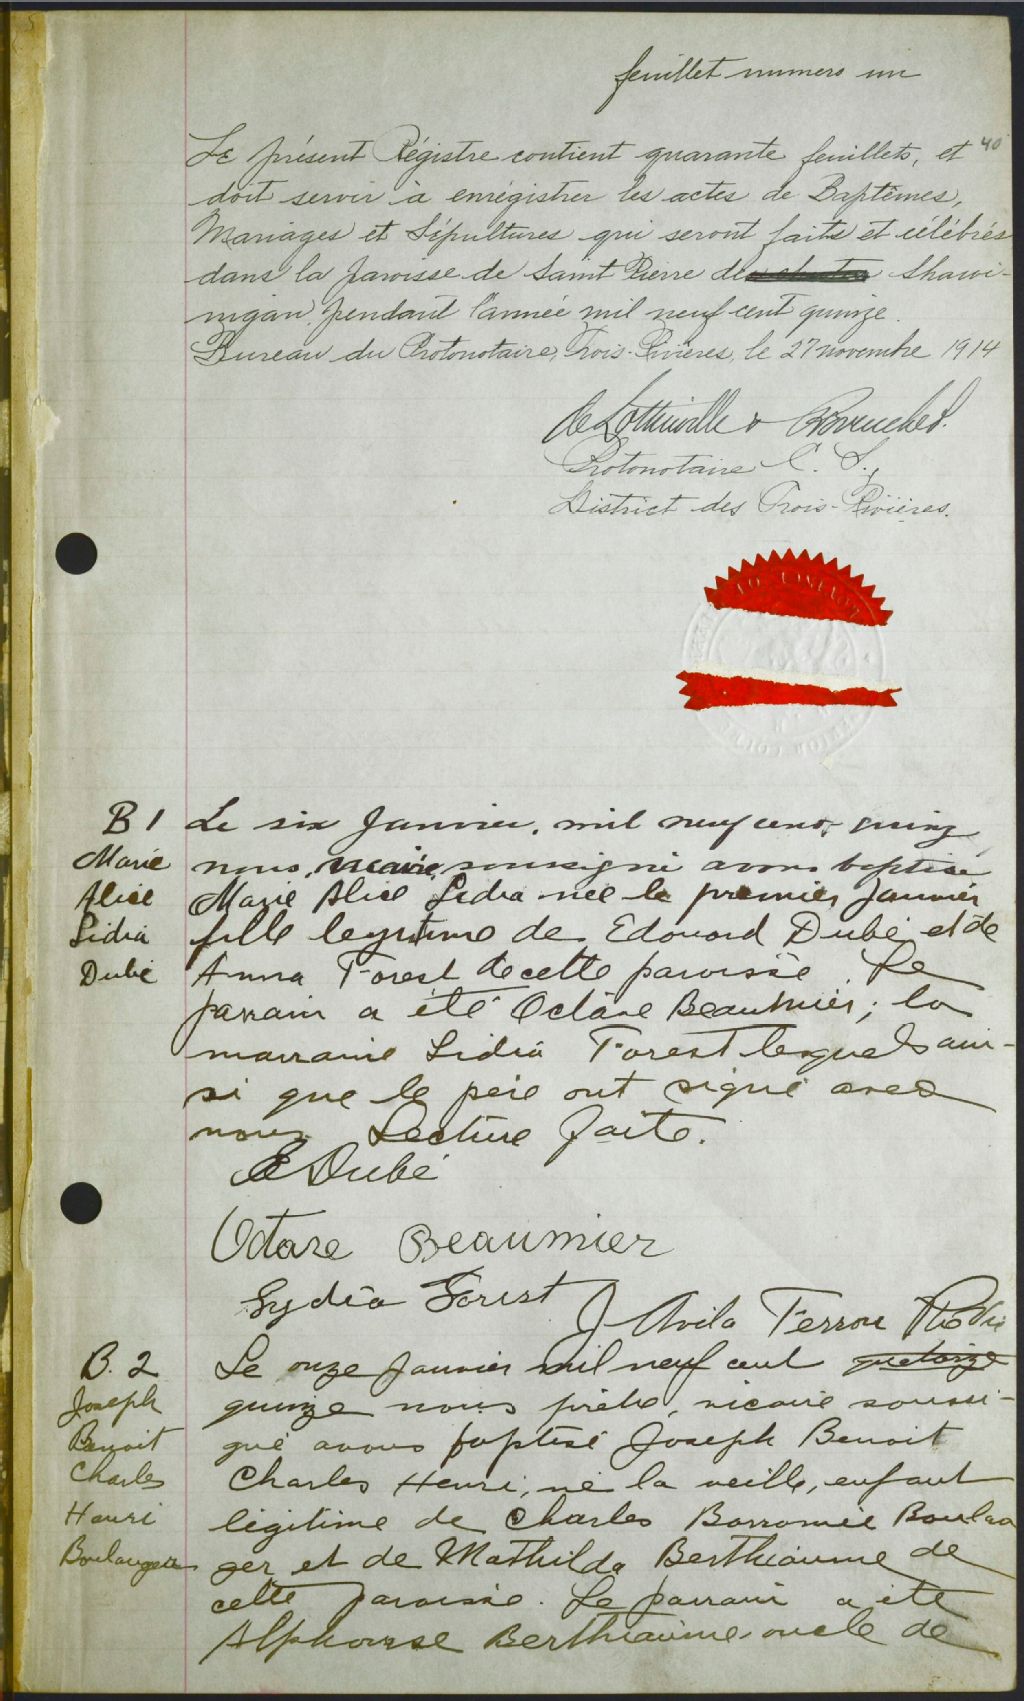 feuillet numero un
40
Le présent Régistre contient quarante feuillets, et
doit servir à enrégistrer les actes de Baptêmes,
Mariages et Sépultures qui seront faits et célébrés
dans la paroisse de Saint Pierre de Shawi-
nigan, pendant l'année mil neuf cent quinze.
Bureau du Protonotaire, Trois-Rivières, le 27 novembre 1914
Protonotaire C. S.,
District des Trois-Rivières.
B 1
Marie
Alice
Lidia
Dubé
Le six Janvier, mil neuf cent quinz
nous, vicaire, soussigné avons baptisé
Marie Alice Lidia née le premier Janvier
fille legitime de Edouard Dubé et de
Anna Forest de cette paroisse. Le
parrain a été Octave Beaumier; la
marraine Lidia Forest lesquels ain-
si que le père ont signé avec
nous. Lecture faite.
E Dubé
Octave Beaumier
Lydia Forest
J Avila Ferron Ptre Vic
B. 2
Joseph
Benoit
Charles
Henri
Boulanger
Le onze Janvier mil neuf cent quatorze
quinze nous prêtre, vicaire soussi-
gné avons baptisé Joseph Benoit
Charles Henri, né la veille, enfant
légitime de Charles Borromée Boulan
ger et de Mathilda Berthiaume de
cette paroisse. Le parrain a été
Alphonse Berthiaume oncle de